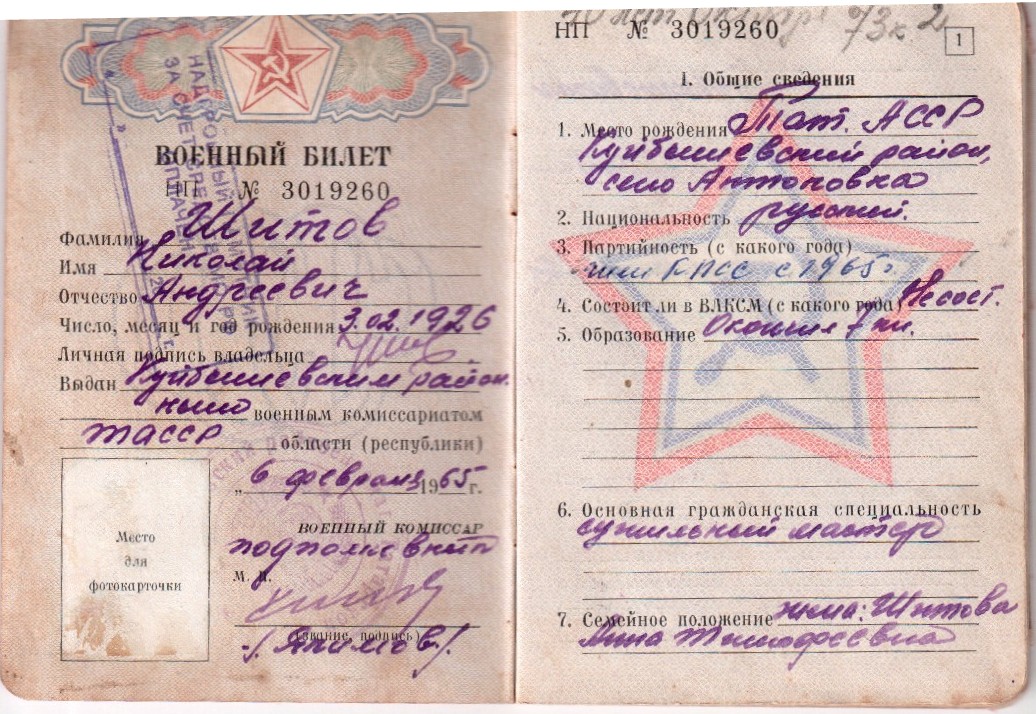 ВОЕННЫЙ БИЛЕТ
НП № 3019260
Фамилия Шитов
Имя Николай
Отчество Андреевич
Число, месяц и год рождения 3.02.1926
Личная подпись владельца
Выдан Куйбышевским район
ным военным комиссариатом
ТАССР области (республики)
„ 6 февраля 1965 г.
ВОЕННЫЙ КОМИССАР
подполковник
М. П.
(звание, подпись)
Место
для
фотокарточки
НП № 3019260
73к 2
1
I. Общие сведения
1. Место рождения Тат. АССР
Куйбышевский район,
село Антоновка
2. Национальность русский.
3. Партийность (с какого года)
член КПСС с 1965г
4. Состоит ли в ВЛКСМ (с какого года) Не сост.
5. Образование Окончил 7 кл.
6. Основная гражданская специальность
сушильный мастер
7. Семейное положение жена: Шитова
Анна Тимофеевна